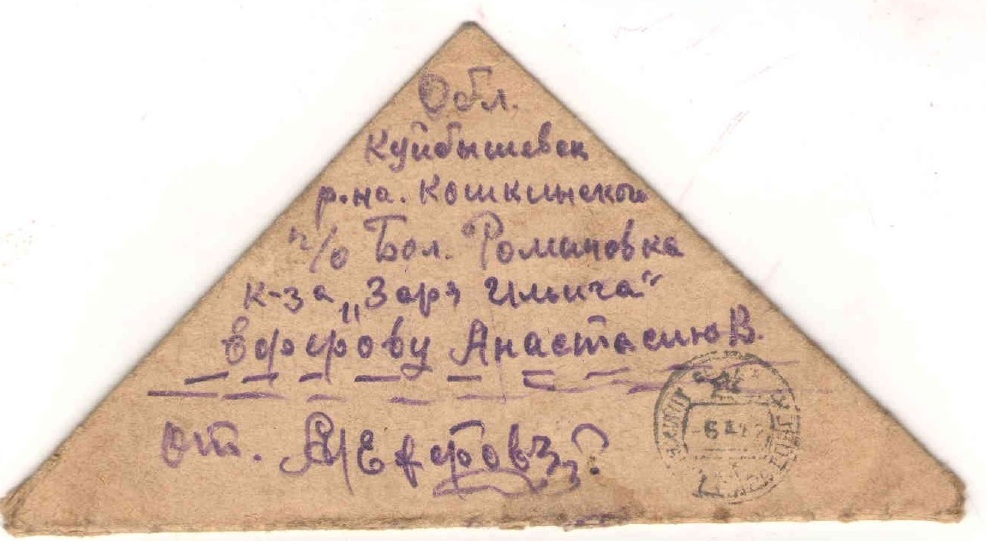 Обл.
Куйбышевск
р.на. Кошкинского
п/о Бол. Романовка
к-за „Заря Ильича“
Ефёрову Анастасию В.
от.